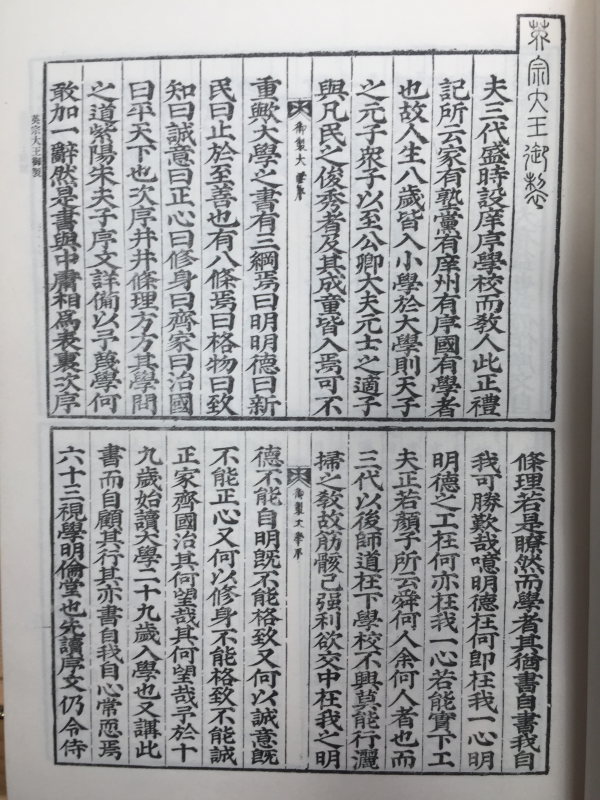 英宗大王御製
夫三代盛時設庠序學校而敎人此正禮
記所云家有塾黨有庠州有序國有學者
也故人生八歲皆入小學於大學則天子
之元子衆子以至公卿大夫元士之適子
與凡民之俊秀者及其成童皆入焉可不
御製大學序
重歟大學之書有三綱焉曰明明德曰新
民曰止於至善也有八條焉曰格物曰致
知曰誠意曰正心曰修身曰齊家曰治國
曰平天下也次序井井條理方方其學問
之道紫陽朱夫子序文詳備以予蔑學何
敢加一辭然是書與中庸相爲表裏次序
英宗大王御製
條理若是瞭然而學者其猶書自書我自
我可勝歎哉噫明德在何卽在我一心明
明德之工在何亦在我一心若能實下工
夫正若顏子所云舜何人余何人者也而
三代以後師道在下學校不興莫能行灑
掃之敎故筋骸已强利欲交中在我之明
御製大學序
德不能自明旣不能格致又何以誠意旣
不能正心又何以修身不能格致不能誠
正家齊國治其何望哉其何望哉予於十
九歲始讀大學二十九歲入學也又講此
書而自顧其行其亦書自我自心常恧焉
六十三視學明倫堂也先讀序文仍令侍